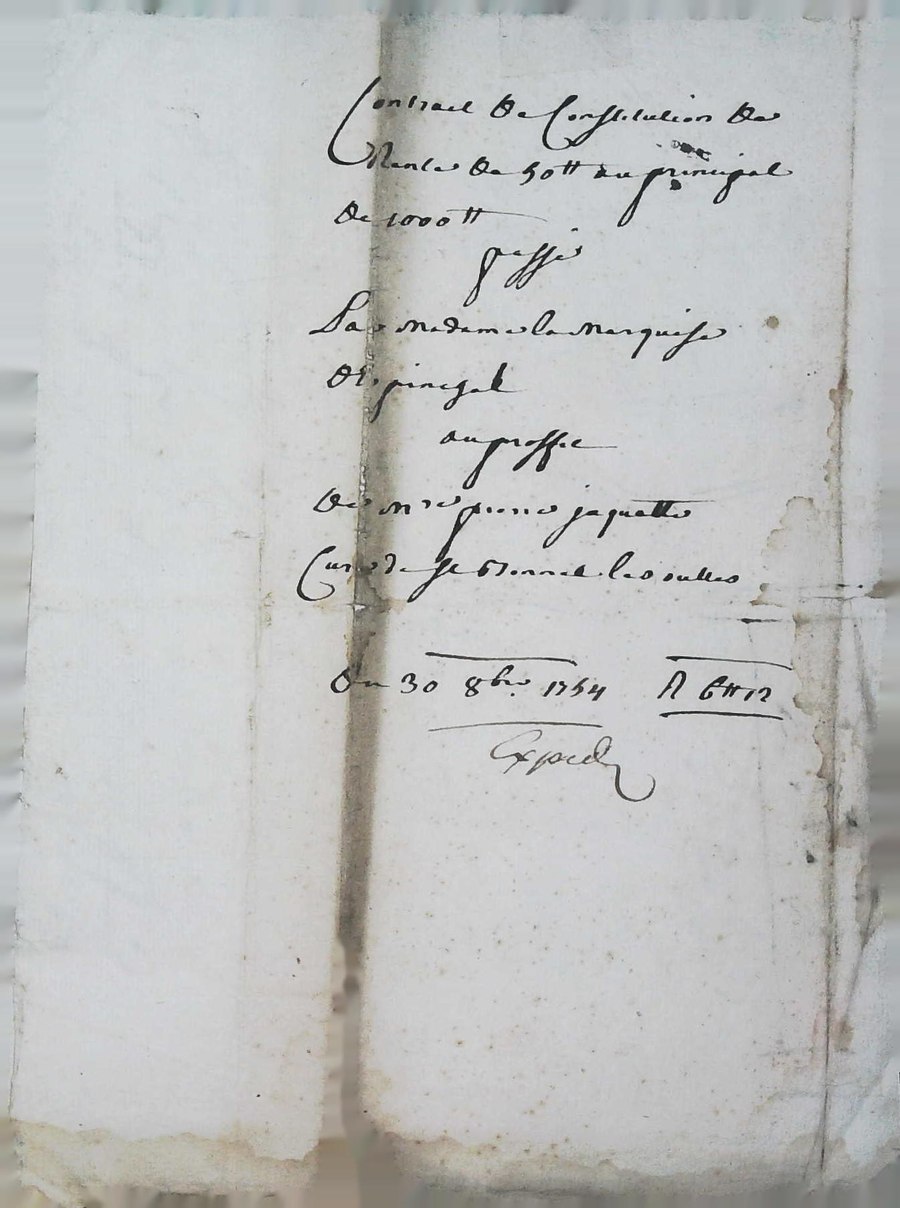 Contract de Constitution de
Rente de 50tt au principal
de 1000tt
passé
Par Madame la Marquise
d'Epinchal
au proffit
de mre pierre jaquette
Curé de st Bonnet les oulles
Du 30 8bre 1754 R 6tt 12
Exped